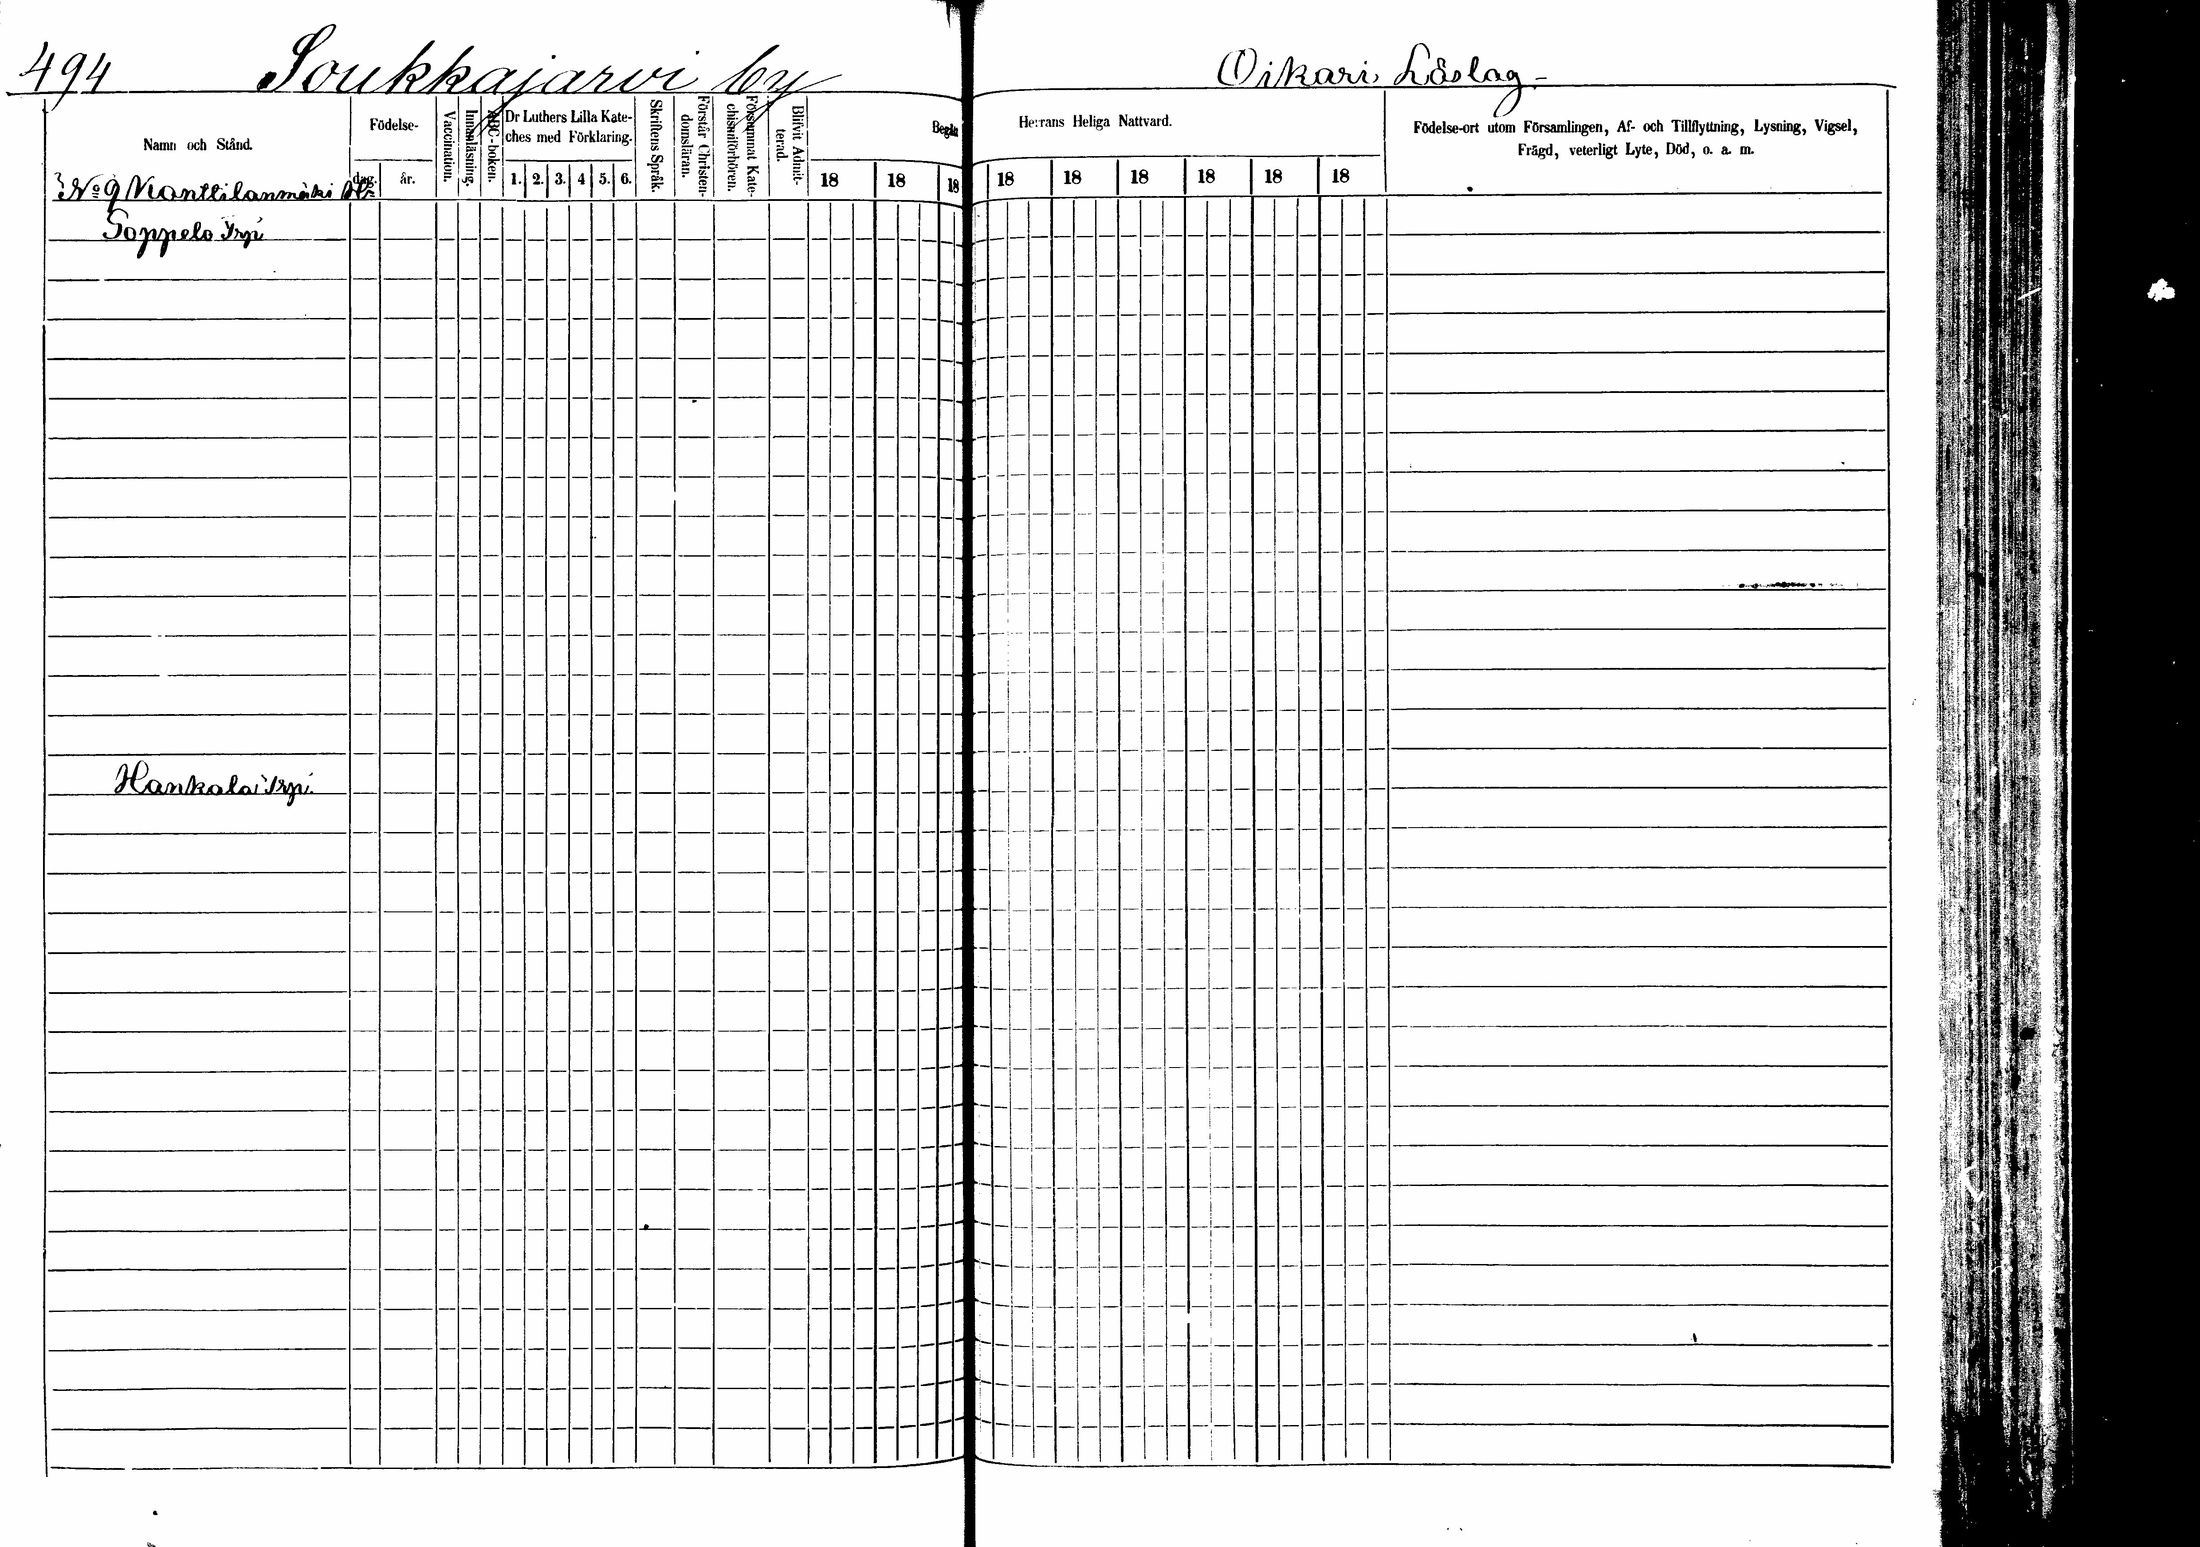 494 Soukkajarvi by
Oikari Läslag
Namn och Stånd.
Födelse-
dag.
år.
Vaccination.
Innanläsning.
ABC-boken.
Dr Luthers Lilla Kate-
ches med Förklaring.
1. 2. 3. 4 5. 6.
Skriftens Språk.
Förstår Christen-
domsläran.
Försummat Kate-
chismiförhören.
Blifvit Admit-
terad.
Begått
18 18 18
Herrans Heliga Nattvard.
18 18 18 18 18 18
Födelse-ort utom Församlingen, Af- och Tillflyttning, Lysning, Vigsel,
Frägd, veterligt Lyte, Död, o. a. m.
No 9 Kanttilanmäki
Toppelo Trp
Hankala Trp